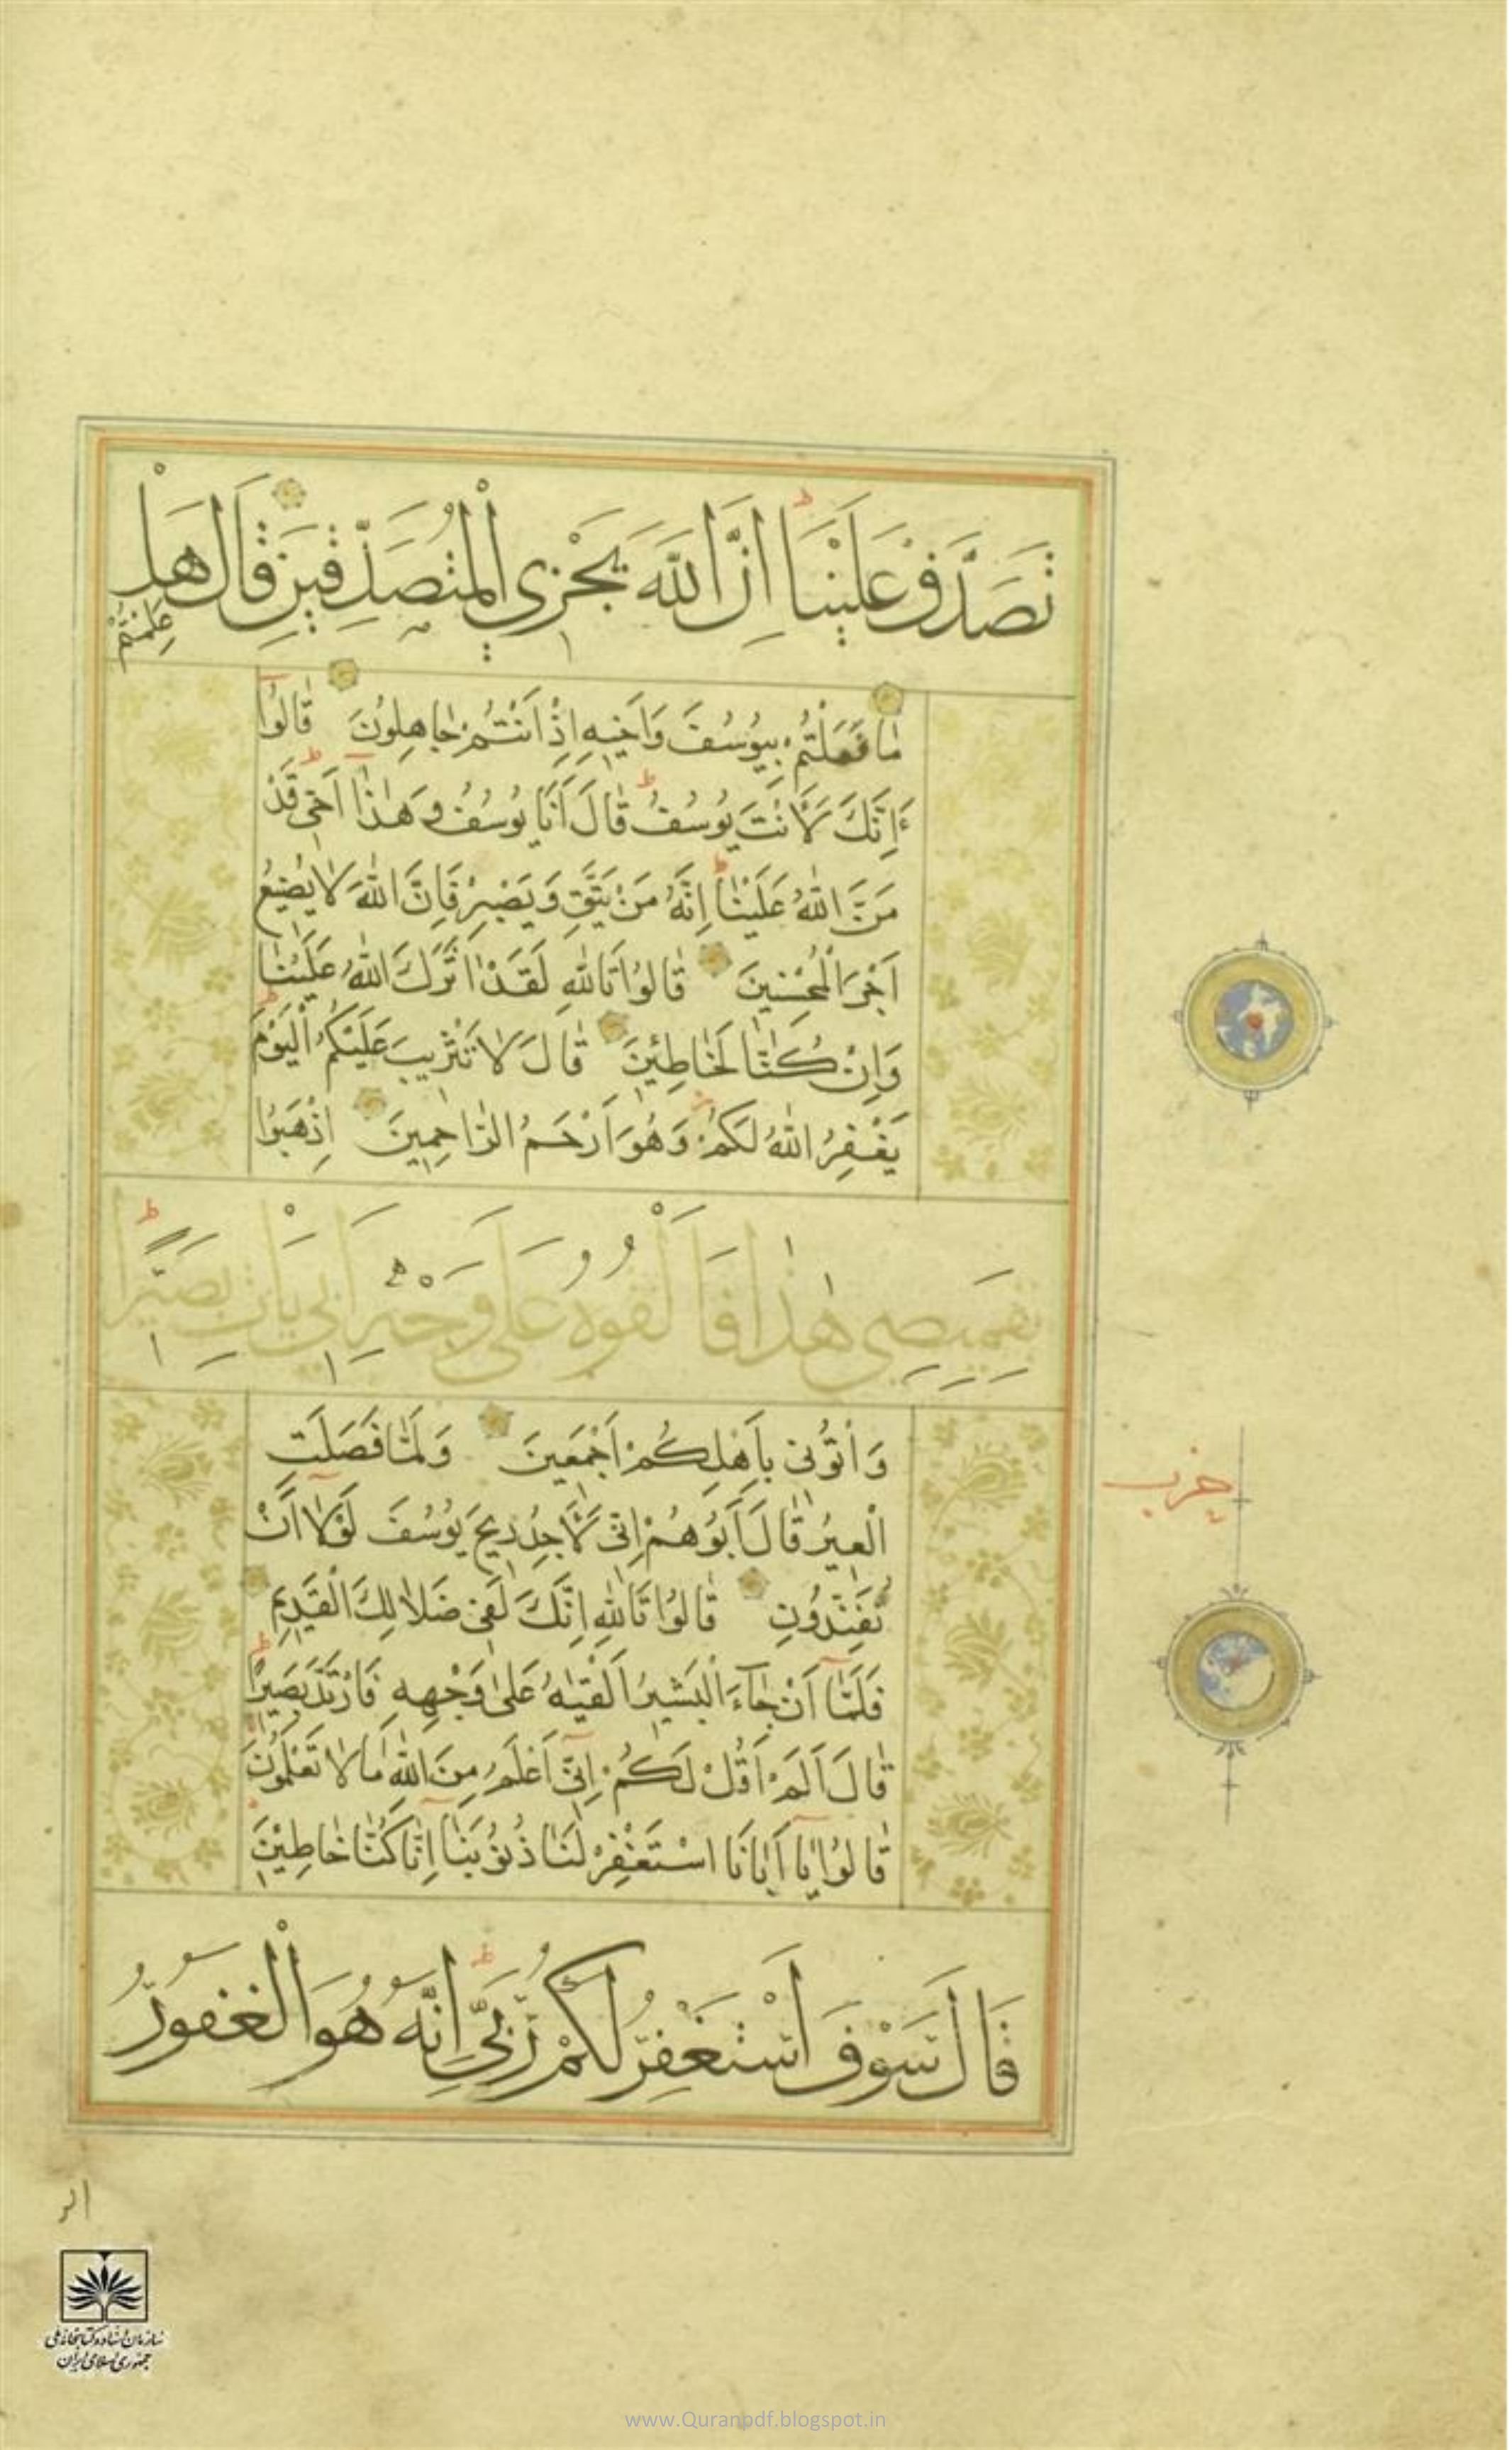 تَصَدَّقْ عَلَيْنَا اِنَّ اللَّهَ يَجْزِي الْمُتَصَدِّقِينَ قَالَ هَلْ
عَلِمْتُمْ
مَا فَعَلْتُمْ بِيُوسُفَ وَاَخِيهِ اِذْ اَنْتُمْ جَاهِلُونَ قَالُوا
ءَاِنَّكَ لَاَنْتَ يُوسُفُ قَالَ اَنَا يُوسُفُ وَهٰذَا اَخِى قَدْ
مَنَّ اللّٰهُ عَلَيْنَا اِنَّهُ مَنْ يَتَّقِ وَيَصْبِرْ فَاِنَّ اللّٰهَ لَا يُضِيعُ
اَجْرَ الْمُحْسِنِينَ قَالُوا تَاللّٰهِ لَقَدْ اٰثَرَكَ اللّٰهُ عَلَيْنَا
وَاِنْ كُنَّا لَخَاطِئِينَ قَالَ لَا تَثْرِيبَ عَلَيْكُمُ الْيَوْمَ
يَغْفِرُ اللّٰهُ لَكُمْ وَهُوَ اَرْحَمُ الرَّاحِمِينَ اِذْهَبُوا
بِقَمِيصِي هٰذَا فَاَلْقُوهُ عَلَى وَجْهِ اَبِي يَاْتِ بَصِيرًا
وَاْتُونِى بِاَهْلِكُمْ اَجْمَعِينَ وَلَمَّا فَصَلَتِ
الْعِيرُ قَالَ اَبُوهُمْ اِنِّى لَاَجِدُ رِيحَ يُوسُفَ لَوْلَا اَنْ
تُفَنِّدُونِ قَالُوا تَاللّٰهِ اِنَّكَ لَفِى ضَلَالِكَ الْقَدِيمِ
فَلَمَّا اَنْ جَاءَ الْبَشِيرُ اَلْقٰيهُ عَلٰى وَجْهِهِ فَارْتَدَّ بَصِيرًا
قَالَ اَلَمْ اَقُلْ لَكُمْ اِنِّى اَعْلَمُ مِنَ اللّٰهِ مَا لَا تَعْلَمُونَ
قَالُوا يَا اَبَانَا اسْتَغْفِرْ لَنَا ذُنُوبَنَا اِنَّا كُنَّا خَاطِئِينَ
قَالَ سَوْفَ اَسْتَغْفِرُ لَكُمْ رَبِّي اِنَّهُ هُوَ الْغَفُورُ
حزب
الر
سازمان اسناد و کتابخانه ملی
جمهوری اسلامی ایران
www.Quranpdf.blogspot.in